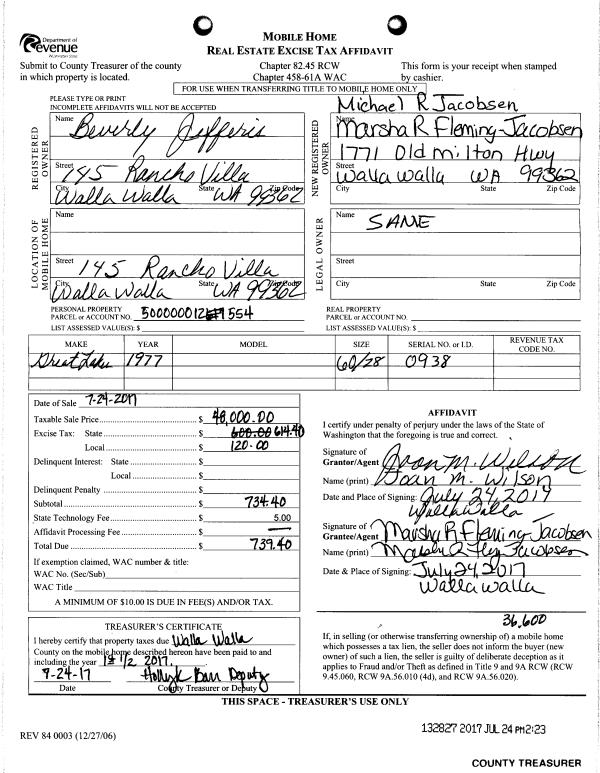 Department of
Revenue
Washington State
MOBILE HOME
REAL ESTATE EXCISE TAX AFFIDAVIT
Submit to County Treasurer of the county
in which property is located.
Chapter 82.45 RCW
Chapter 458-61A WAC
This form is your receipt when stamped
by cashier.
FOR USE WHEN TRANSFERRING TITLE TO MOBILE HOME ONLY
PLEASE TYPE OR PRINT
INCOMPLETE AFFIDAVITS WILL NOT BE ACCEPTED
REGISTERED OWNER
Name Beverly Jefferis
Street 145 Rancho Villa
City Walla Walla State WA Zip Code 99362
NEW REGISTERED OWNER
Michael R Jacobsen
Name Marsha R Fleming-Jacobsen
1771 Old Milton Hwy
Street Walla Walla WA 99362
City State Zip Code
LOCATION OF MOBILE HOME
Name
Street 145 Rancho Villa
City Walla Walla State WA Zip Code 99362
LEGAL OWNER
Name SAME
Street
City State Zip Code
PERSONAL PROPERTY
PARCEL or ACCOUNT NO. 1554
LIST ASSESSED VALUE(S): $
REAL PROPERTY
PARCEL or ACCOUNT NO.
LIST ASSESSED VALUE(S): $
MAKE YEAR MODEL SIZE SERIAL NO. or I.D. REVENUE TAX CODE NO.
Great Lakes 1977 60/28 0938
Date of Sale 7-24-2017
Taxable Sale Price $ 48,000.00
Excise Tax: State $ 600.00 614.40
Local $ 120.00
Delinquent Interest: State $
Local $
Delinquent Penalty $
Subtotal $ 734.40
State Technology Fee $ 5.00
Affidavit Processing Fee $ —
Total Due $ 739.40
If exemption claimed, WAC number & title:
WAC No. (Sec/Sub)
WAC Title
A MINIMUM OF $10.00 IS DUE IN FEE(S) AND/OR TAX.
AFFIDAVIT
I certify under penalty of perjury under the laws of the State of
Washington that the foregoing is true and correct.
Signature of
Grantor/Agent Joan M. Wilson
Name (print) Joan M. Wilson
Date and Place of Signing: July 24, 2017
Walla Walla
Signature of
Grantee/Agent Marsha R Fleming-Jacobsen
Name (print) Marsha R Jacobsen
Date & Place of Signing: July 24, 2017
Walla Walla
TREASURER'S CERTIFICATE
I hereby certify that property taxes due Walla Walla
County on the mobile home described hereon have been paid to and
including the year 1st 1/2 2017.
7-24-17 Barr Deputy
Date County Treasurer or Deputy
36,600
If, in selling (or otherwise transferring ownership of) a mobile home
which possesses a tax lien, the seller does not inform the buyer (new
owner) of such a lien, the seller is guilty of deliberate deception as it
applies to Fraud and/or Theft as defined in Title 9 and 9A RCW (RCW
9.45.060, RCW 9A.56.010 (4d), and RCW 9A.56.020).
THIS SPACE - TREASURER'S USE ONLY
132827 2017 JUL 24 PM 2:23
REV 84 0003 (12/27/06)
COUNTY TREASURER